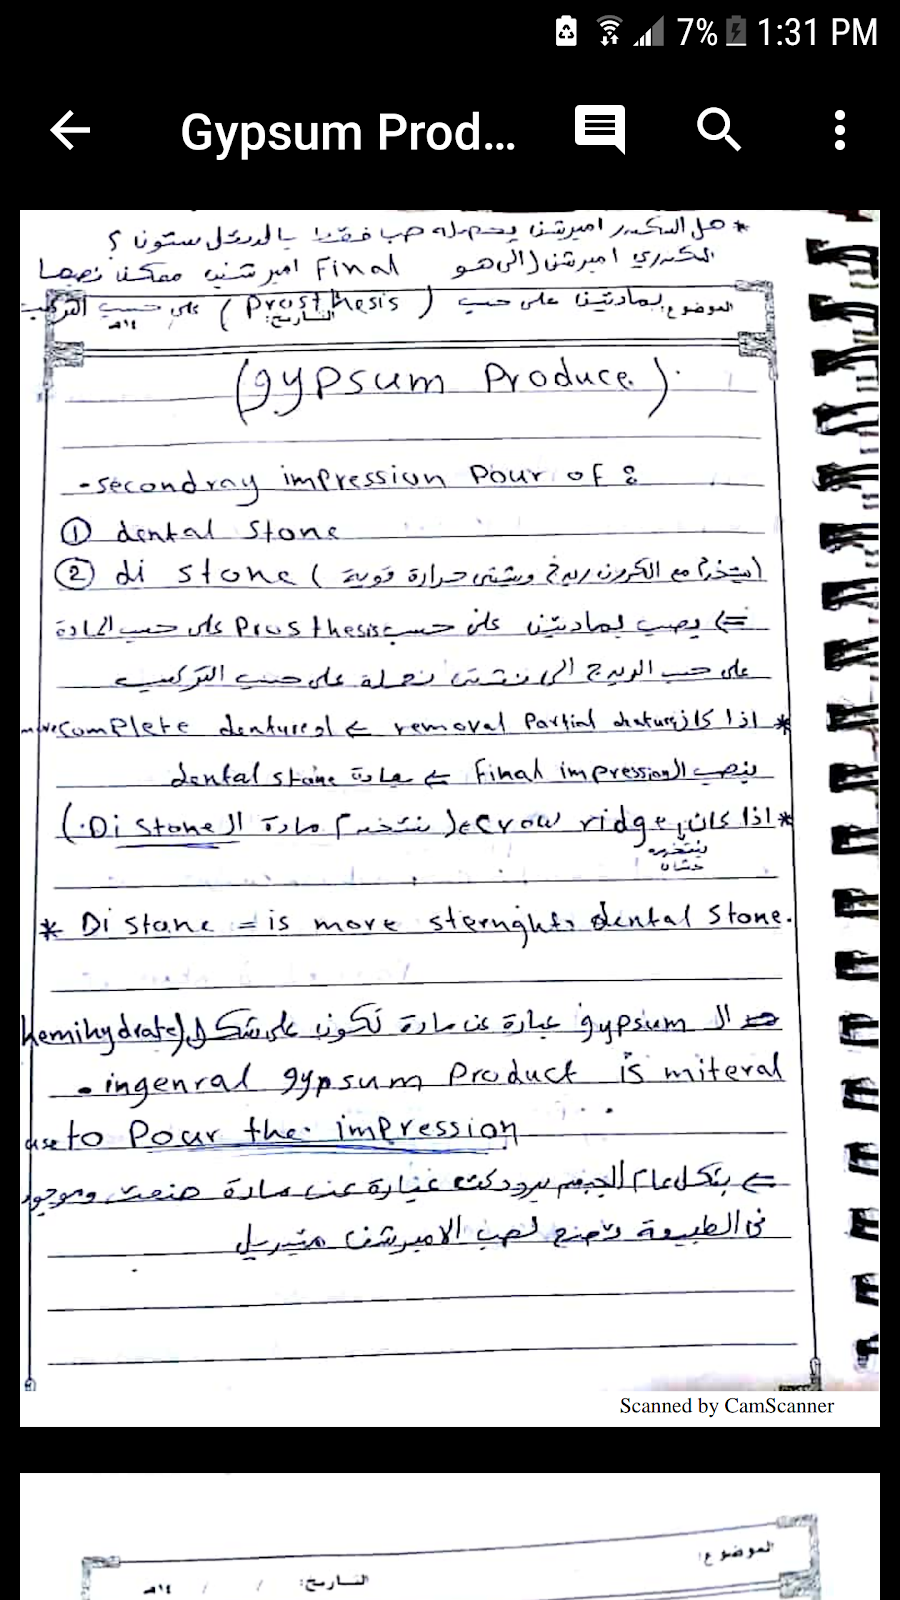 7% 1:31 PM
Gypsum Prod...
* هل السكندر امبرشن يصب فقط بالدنتل ستون ؟
السكندري امبرشن (الي هو Final امبرشن ممكن نصبها
الموضوع: بمادتين على حسب (Prosthesis) على حسب التركيب
التاريخ: / / ١٤هـ
(gypsum Produce).
- secondray impression Pour of :
① dental stone
② di stone (يستخدم مع الكرون ريدج ويشتي حرارة قوية)
=> يصب بمادتين على حسب Prosthesis على حسب المادة
على حسب الريدج الي نشتي نعمله على حسب التركيب
* اذا كان removal Partial denture ← او complete denture
بنصب ال Final impression ← بمادة dental stone
* اذا كان crow ridge (نستخدم مادة ال Di stone.)
بنستخدمه
خشان
* Di stone = is more sternght, dental Stone.
=> ال gypsum عبارة عن مادة تكون على شكل (hemihydrate
- ingenral gypsum Product is miteral
use to Pour the impression
<= بشكل عام الجبسم برودكت عبارة عن مادة صنعت وموجود
في الطبيعة وتصنع لصب الامبرشن متيريل
Scanned by CamScanner
الموضوع:
التاريخ: / / ١٤هـ